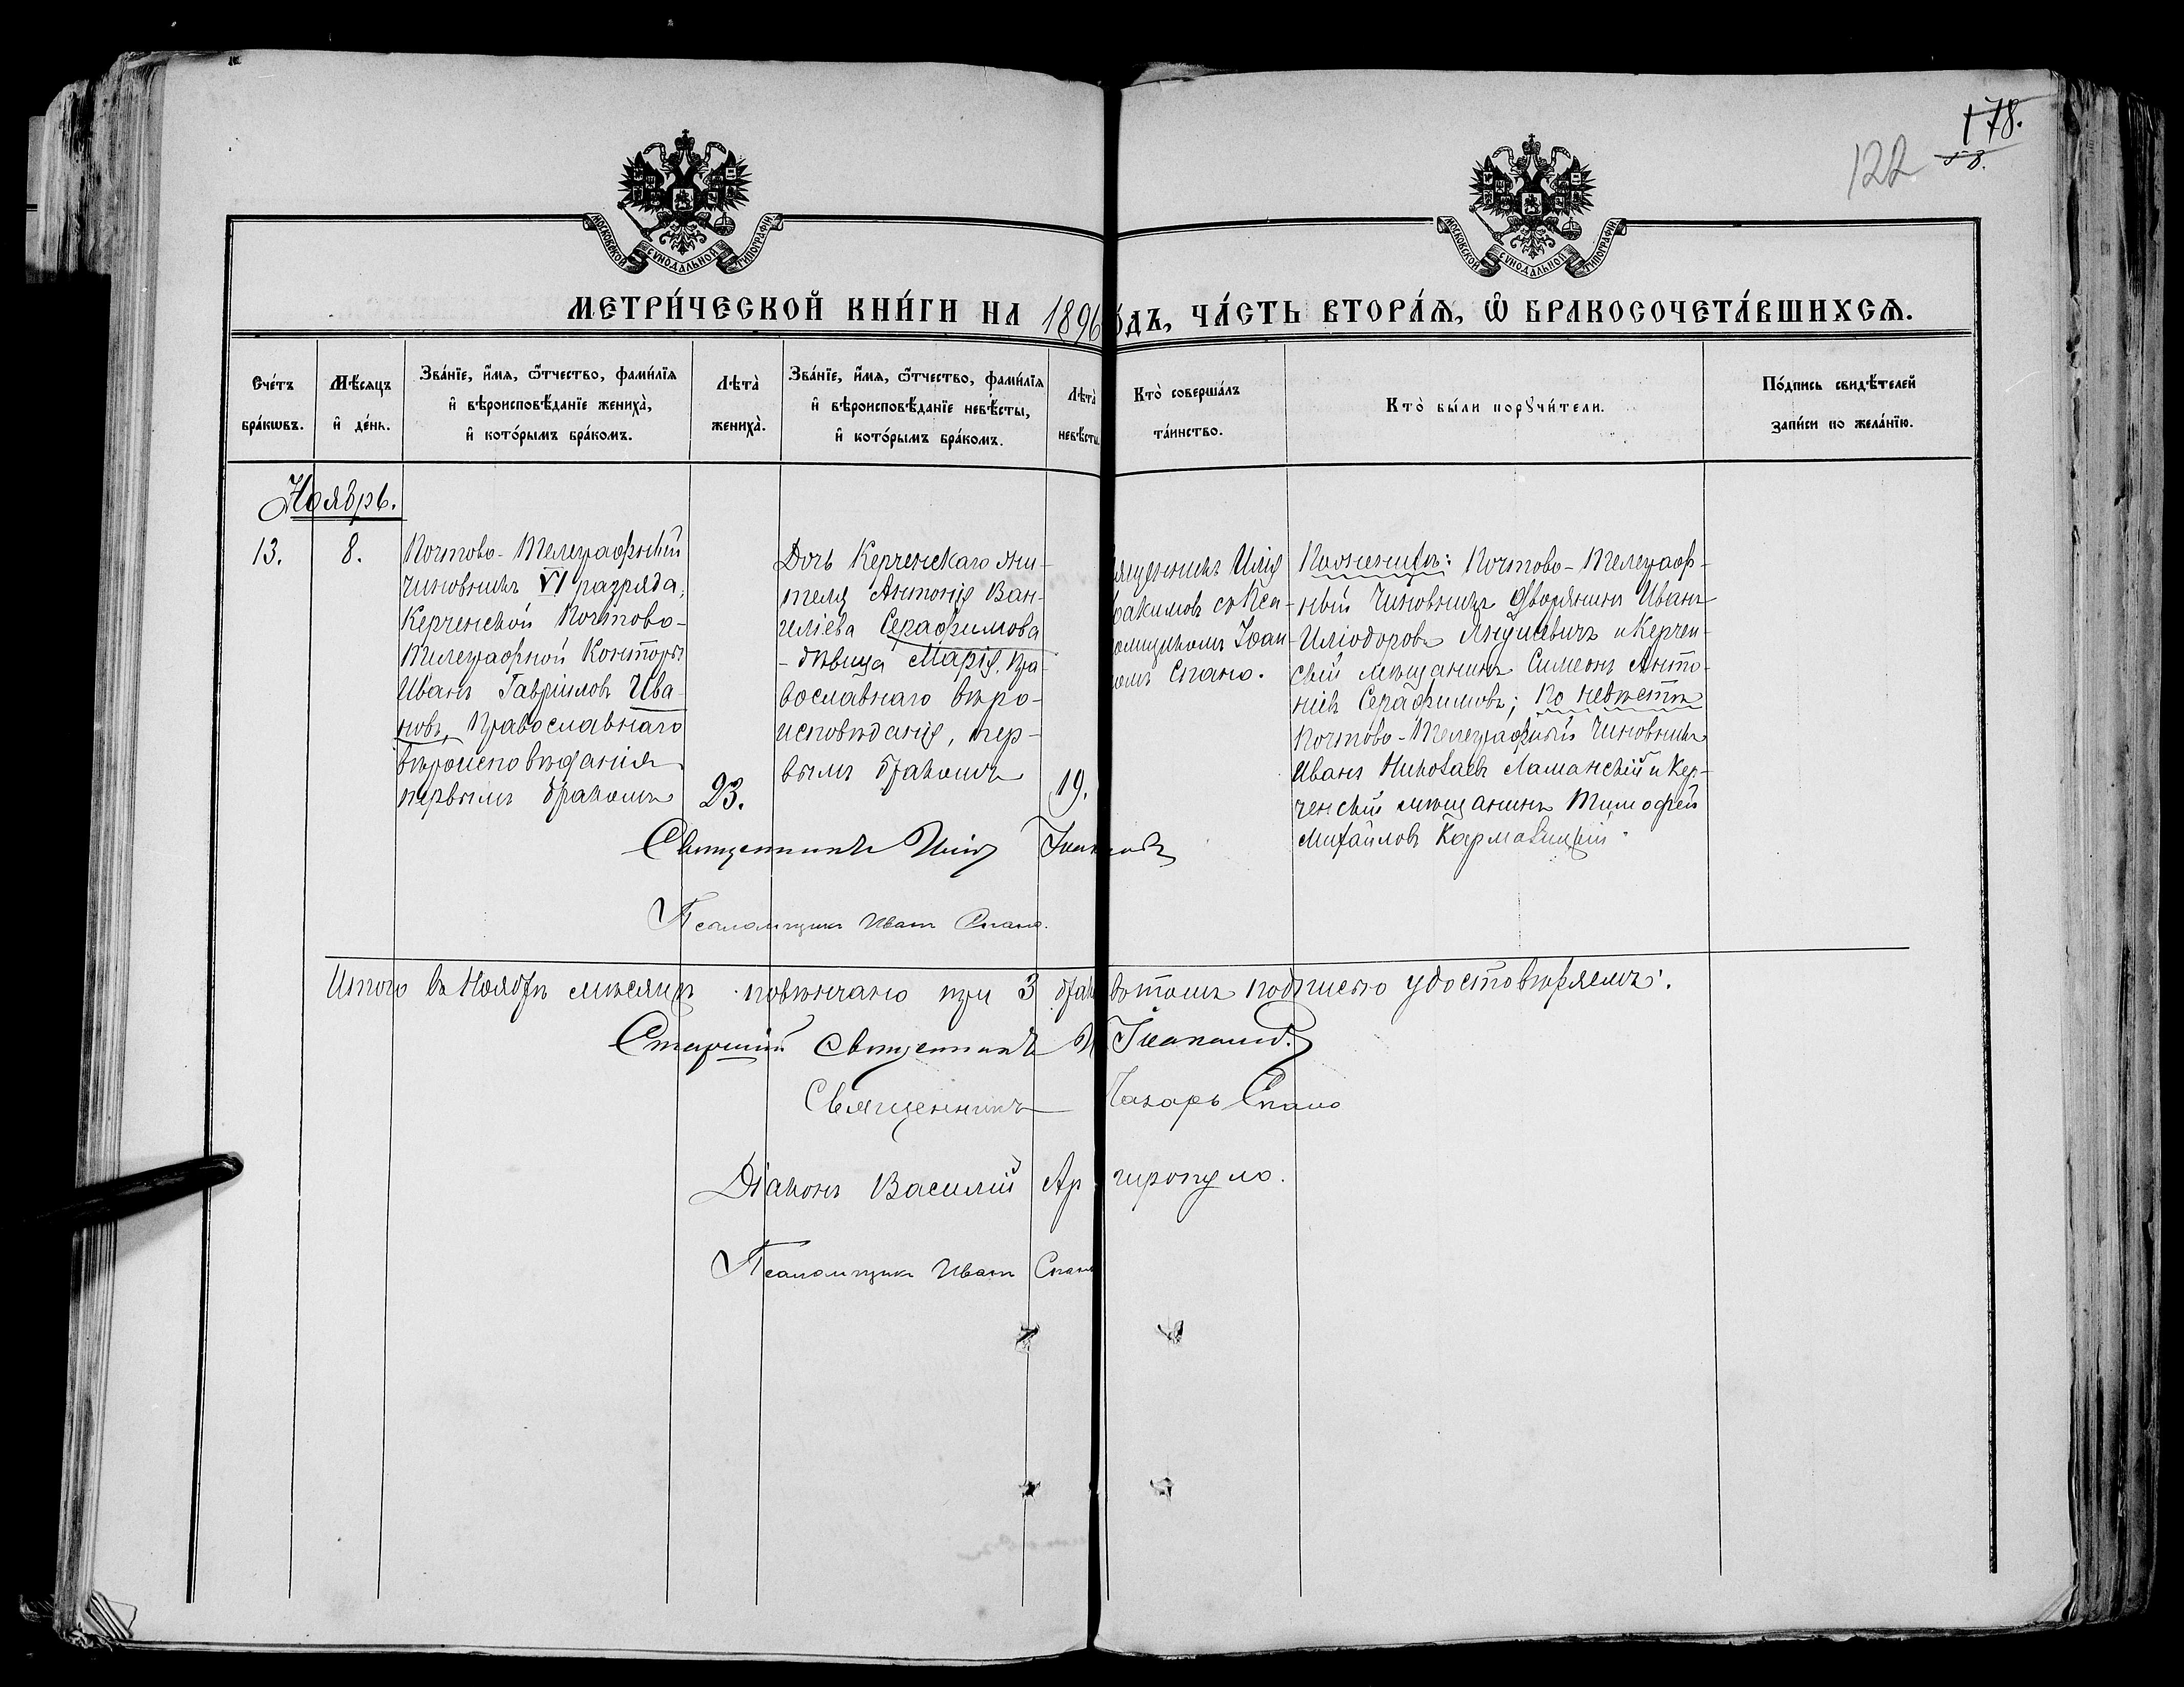 178.
122
МОСКОВСКОЙ СѴНОДАЛЬНОЙ ТИПОГРАФІИ
МОСКОВСКОЙ СѴНОДАЛЬНОЙ ТИПОГРАФІИ
МЕТРИ́ЧЕСКОЙ КНИ́ГИ НА 1896 ОДЪ, ЧА́СТЬ ВТОРА́Ѧ, Ѽ БРАКОСОЧЕТА́ВШИХСѦ.
Сче́тъ
бра́кѡвъ.
Мѣ́сѧцъ
и҆ де́нь.
Зва́нїе, и҆́мѧ, ѻ҆́тчество, фамı́лїѧ
и҆ вѣроисповѣ́данїе жениха̀,
и҆ кото́рымъ бра́комъ.
Лѣта̀
жениха̀.
Зва́нїе, и҆́мѧ, ѻ҆́тчество, фамı́лїѧ
и҆ вѣроисповѣ́данїе невѣ́сты,
и҆ кото́рымъ бра́комъ.
Лѣта̀
невѣ́сты
Кто̀ соверша́лъ
та́инство.
Кто̀ бы́ли порꙋчи́тели.
По́дпись свидѣ́телей
за́писи по жела́нїю.
Ноябрь.
13.
8.
Почтово-Телеграфный
чиновникъ VI разряда,
Керченской Почтово-
Телеграфной Конторы
Иванъ Гавріиловъ Ива-
новъ, православнаго
вѣроисповѣданія
первымъ бракомъ
23.
Дочь Керченскаго жи-
теля Антонія Ван-
геліева Серафимова
- дѣвица Марія, пра-
вославнаго вѣро-
исповѣданія, пер-
вымъ бракомъ
19.
ященникъ Илія
акимовъ съ Пса-
омщикомъ Іоан-
омъ Спано.
По женихѣ: Почтово-Телеграф-
ный чиновникъ дворянинъ Иванъ
Иліодоровъ Янушевичъ и Керчен-
скій мѣщанинъ Симеонъ Анто-
ніевъ Серафимовъ; по невѣстѣ
Почтово-Телеграфный чиновникъ
Иванъ Николаевъ Ламанскій и Кер-
ченскій мѣщанинъ Тимофей
Михайловъ
Священникъ Илія
Псаломщикъ Иванъ Спано.
Итого въ Ноябрѣ мѣсяцѣ повѣнчано три 3 брак въ томъ подписью удостовѣряемъ:
Старшій Священникъ И
Священникъ Лазарь Спано
Діаконъ Василій Аргиропуло.
Псаломщикъ Иванъ Спано